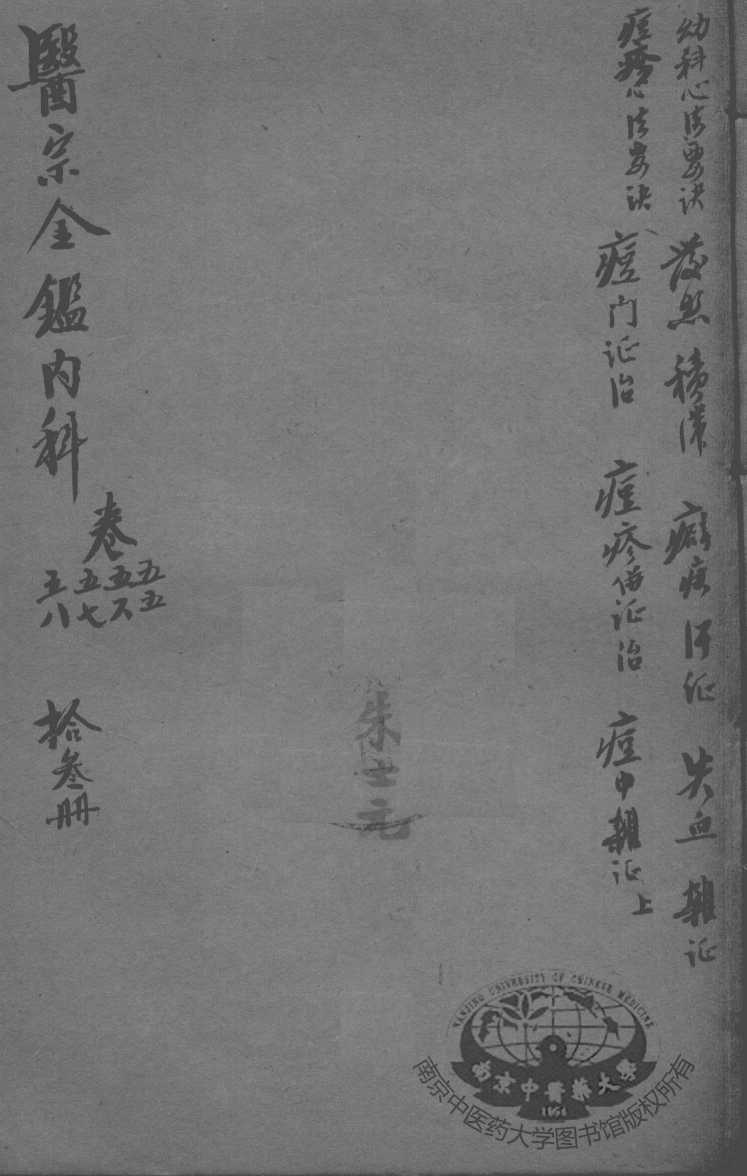 幼科心法要诀 发热 积滞 癖疾 汗证 失血 雜证
痘疹心法要诀 痘门证治 痘疹俻证治 痘中雜证上
朱士元
醫宗全鑑内科 卷
五五
五六
五七
五八
拾叁册
NANJING UNIVERSITY OF CHINESE MEDICINE
南京中醫藥大學
1954
南京中医药大学图书馆版权所有